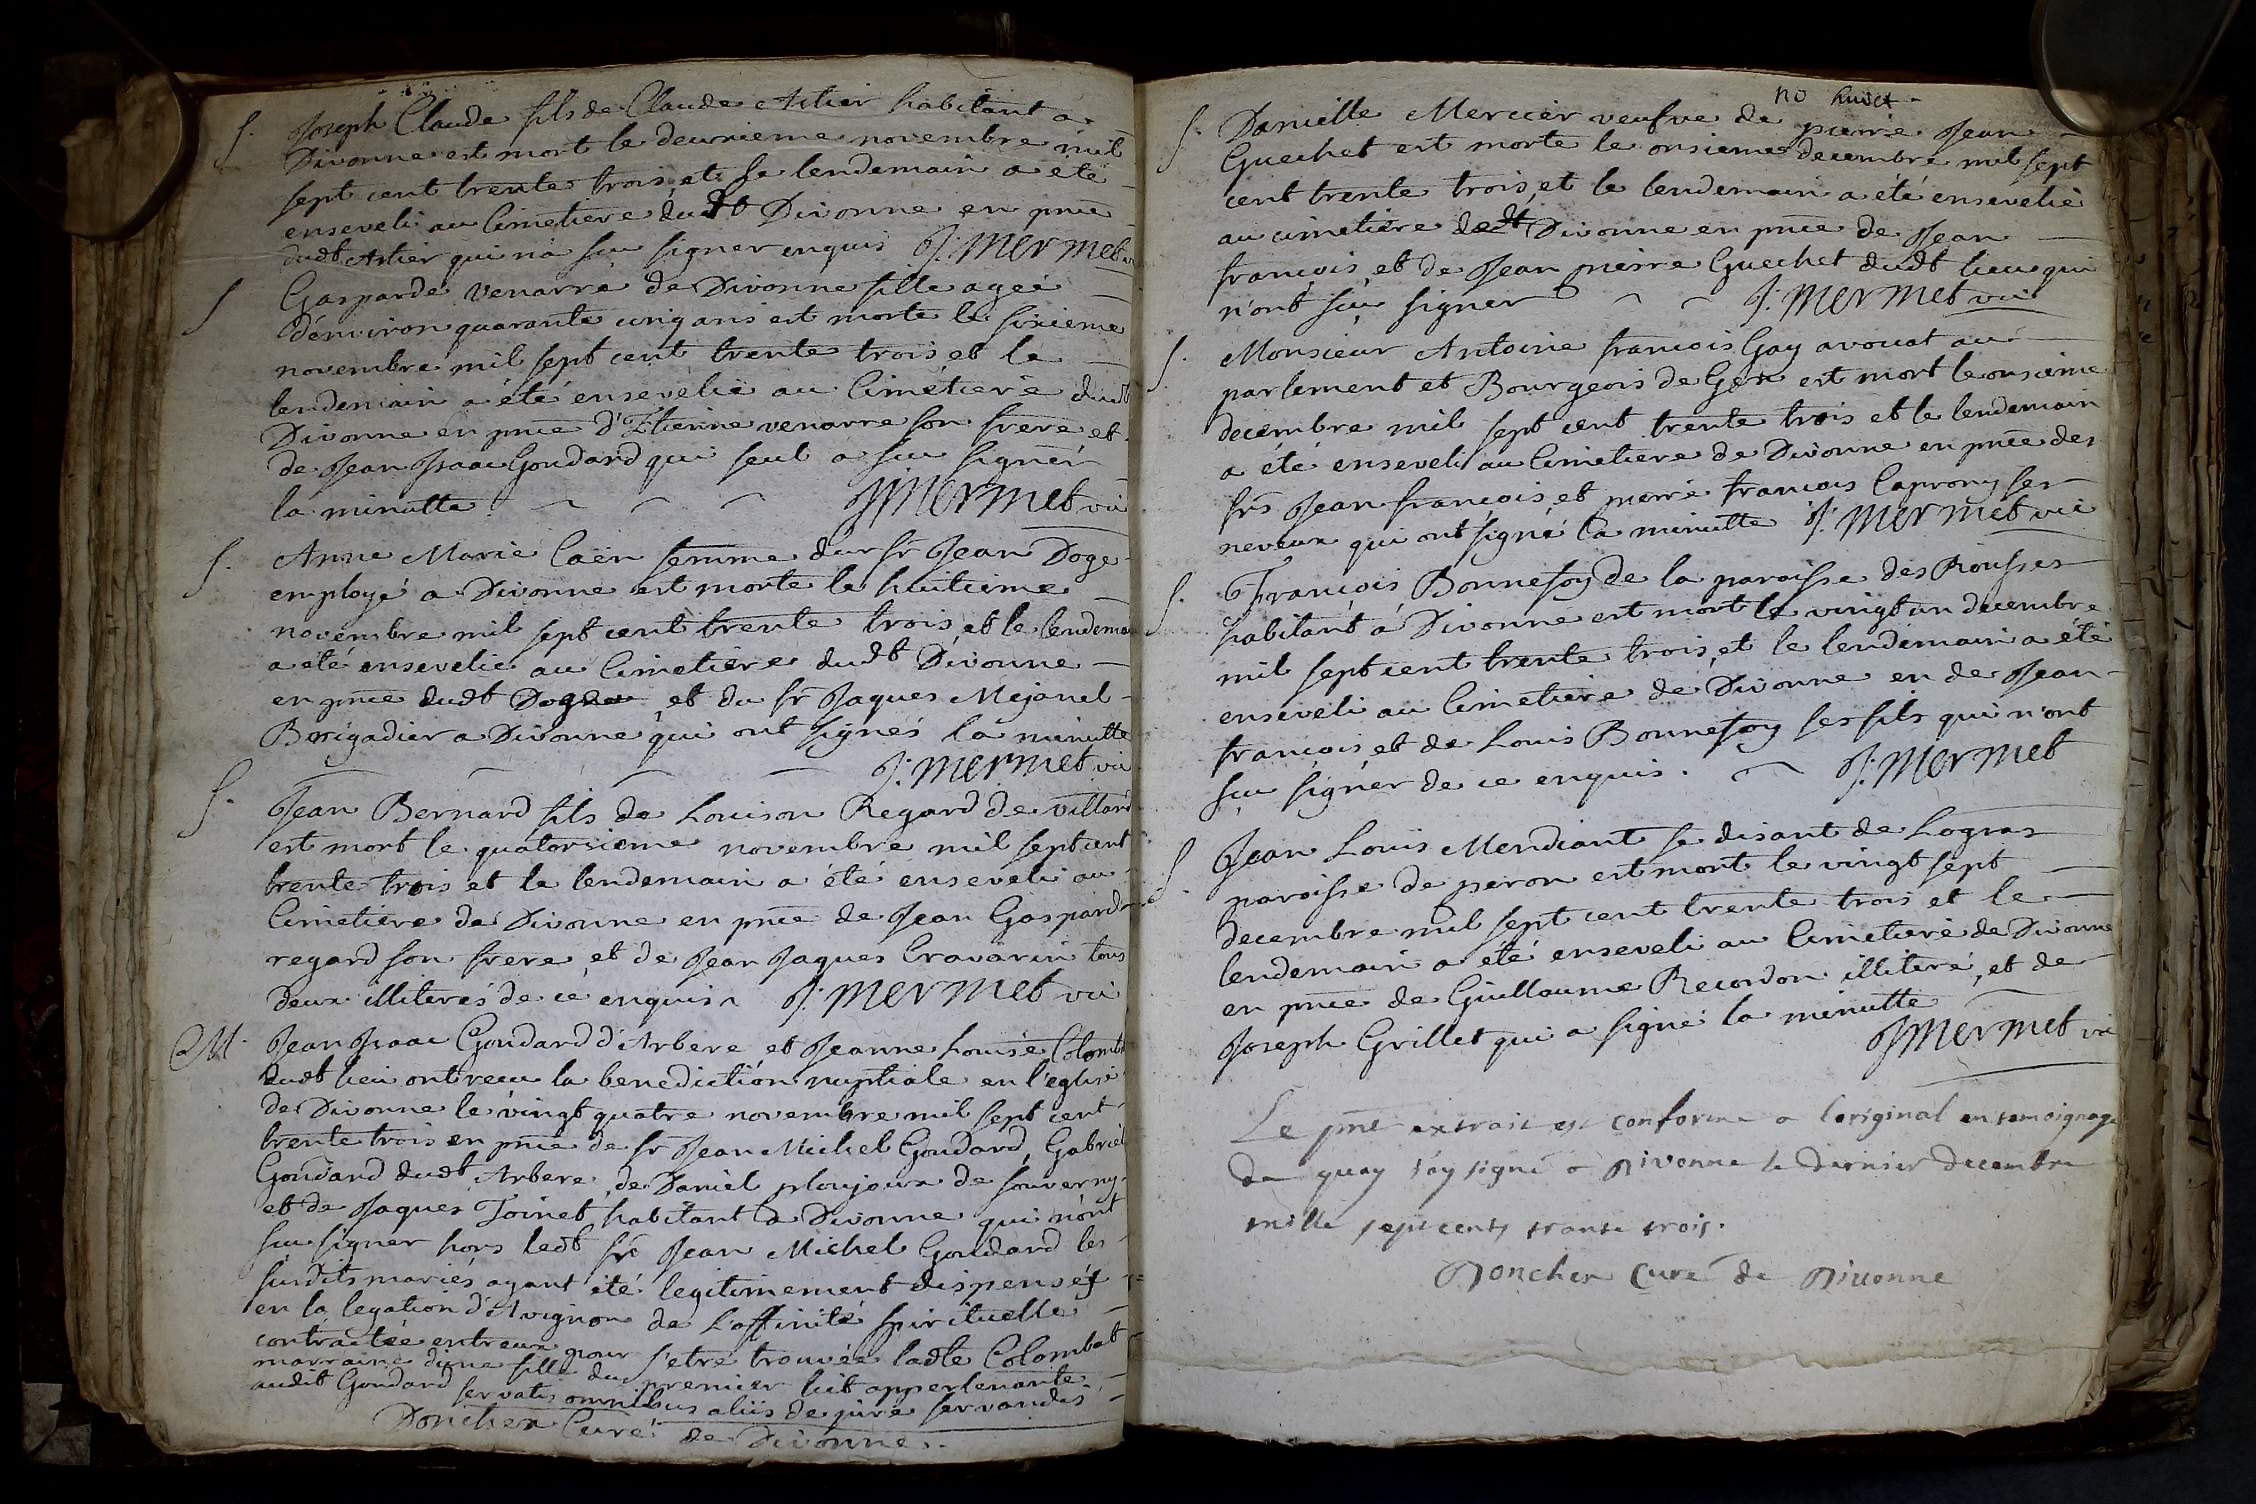 S. Joseph Claude fils de Claude Astier habitant a
Divonne est mort le deuxieme novembre mil
sept cent trente trois, et le lendemain a été
enseveli au Cimetiere dudt Divonne en pnce
dudt Astier qui n'a sçu signer enquis J: Mermet vic
S Gasparde Venarre de Divonne fille agée
d'environ quarante cinq ans est morte le sixieme
novembre mil sept cent trente trois et le
lendemain a été ensevelie au Cimétiere dudt
Divonne en pnce d'Etienne venarre son frere et
de Jean Isaac Goudard qui seul a sçu signer
la minutte. JMermet vic
S. Anne Marie Caën femme du sr Jean Doge
employé a Divonne est morte le huitieme
novembre mil sept cent trente trois, et le lendemai
a été ensevelie au Cimetiere dudt Divonne
en pnce dudt Doge, et du sr Jaques Mejanel
Brigadier a Divonne qui ont signés la minutte
J: Mermet vic
S. Jean Bernard fils de Louison Regard de villard
est mort le quatorsieme novembre mil sept cent
trente trois et le lendemain a été enseveli au
Cimetiere de Divonne en pnce de Jean Gaspard
regard son frere, et de Jean Jaques Cravarin tous
deux illiterés de ce enquis J: Mermet vic
M. Jean Isaac Goudard d'Arbere et Jeanne Louise Colomb
dudt lieu ont recu la benediction nuptiale en l'eglise
de Divonne le vingt quatre novembre mil sept cent
trente trois en pnce de sr Jean Michel Goudard, Gabriel
Goudard dudt Arbere, de Daniel ploujoux de sauverny
et de Jaques Toinet habitant a Divonne qui n'ont
sçu signer hors ledt sr Jean Michel Goudard les
susdits mariés ayant été legitimement dispensés
en la legation d'Avignon de L'affinité spirituelle
contractée entreux pour s'etre trouvée ladte Colombat
marraine d'une fille du premier lit appertenante
audit Goudard servatis omnibus aliis de jure servandis
Doncher Curé de Divonne.
no huict
S. Danielle Mercier veufve de pierre Jean
Guechet est morte le onsieme decembre mil sept
cent trente trois, et le lendemain a été ensevelie
au cimetiere dedt Divonne en pnce de Jean
françois, et de Jean pierre Guechet dudt lieu qui
n'ont sçu signer J: Mermet vic
S. Monsieur Antoine françois Gay avocat au
parlement et Bourgeois de Gex est mort le onsieme
decembre mil sept cent trente trois et le lendemain
a été enseveli au Cimetiere de Divonne en pnce des
srs Jean françois, et pierre françois Caprony ses
neveux qui ont signé la minutte J: Mermet vic
S. François Bonnefoy de la paroisse des Rousses
habitant a Divonne est mort le vingt un decembre
mil sept cent trente trois, et le lendemain a été
enseveli au Cimetiere de Divonne en de Jean
françois et de Louis Bonnefoy ses fils qui n'ont
sçu signer de ce enquis. J: Mermet
S Jean Louis Mendiant se disant de Logras
paroisse de peron est mort le vingt sept
decembre mil sept cent trente trois et le
lendemain a été enseveli au Cimetiere de Divonne
en pnce de Guillaume Recordon illiteré, et de
Joseph Grillet qui a signé la minutte
JMermet vic
Le pnt extrait est conforme a loriginal en temoignage
de quoy j'ay signé a Divonne le dernier decembre
mille sept cents trante trois.
Doncher Curé de Divonne